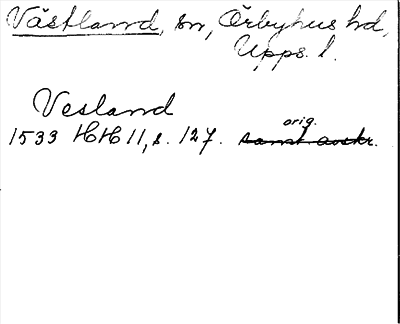 Västland, sn, Örbyhus hd,
Upps. l.
Vesland
1533 HH 11, s. 127. orig. samt avskr.